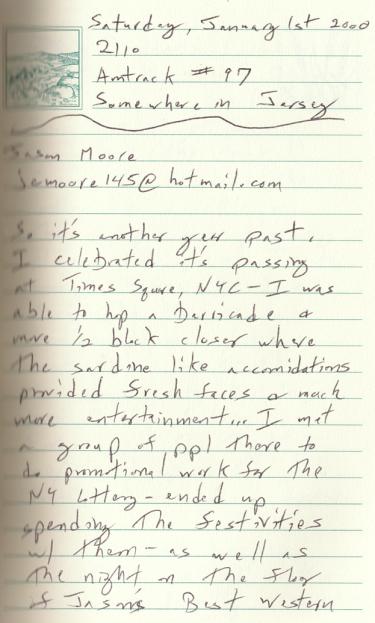 Saturday, January 1st 2000
2110
Amtrack # 97
Somewhere in Jersey
Jason Moore
Jemoore145@hotmail.com
So it's another year past.
I celebrated it's passing
at Times Square, NYC - I was
able to hop a barricade &
move 1/2 block closer where
the sardine like accomidations
provided fresh faces & much
more entertainment... I met
a group of ppl there to
do promotional work for the
NY Lottery - ended up
spending the festivities
w/ them - as well as
the night on the floor
of Jason's Best Western